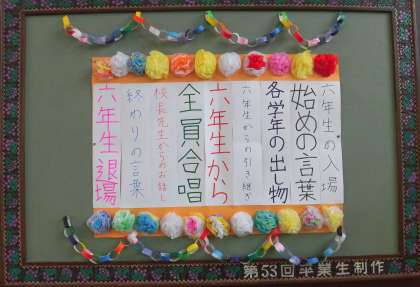 六年生の入場
始めの言葉
各学年の出し物
六年生からの引き継ぎ
六年生から
全員合唱
校長先生からのお話し
終わりの言葉
六年生退場
第53回卒業生制作